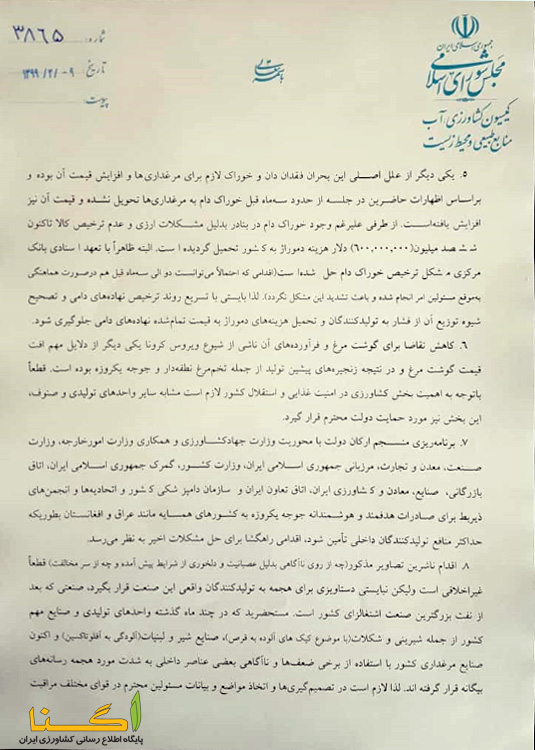 جمهوری اسلامی ایران
مجلس شورای اسلامی
کمیسیون کشاورزی، آب
منابع طبیعی و محیط زیست
باسمه تعالی
شماره: ۳۸۶۵
تاریخ ۱۳۹۹/۲/۰۹
پیوست:
۵. یکی دیگر از علل اصلی این بحران فقدان دان و خوراک لازم برای مرغداری‌ها و افزایش قیمت آن بوده و
براساس اظهارات حاضرین در جلسه از حدود سه‌ماه قبل خوراک دام به مرغداری‌ها تحویل نشده و قیمت آن نیز
افزایش یافته‌است. از طرفی علیرغم وجود خوراک دام در بنادر بدلیل مشکلات ارزی و عدم ترخیص کالا تاکنون
ششصد میلیون(۶۰۰,۰۰۰,۰۰۰) دلار هزینه دموراژ به کشور تحمیل گردیده است. البته ظاهراً با تعهد اسنادی بانک
مرکزی مشکل ترخیص خوراک دام حل شده است(اقدامی که احتمالاً می‌توانست دو الی سه‌ماه قبل هم درصورت هماهنگی
به‌موقع مسئولین امر انجام شده و باعث تشدید این مشکل نگردد). لذا بایستی با تسریع روند ترخیص نهاده‌های دامی و تصحیح
شیوه توزیع آن از فشار به تولیدکنندگان و تحمیل هزینه‌های دموراژ به قیمت تمام‌شده نهاده‌های دامی جلوگیری شود.
۶. کاهش تقاضا برای گوشت مرغ و فرآورده‌های آن ناشی از شیوع ویروس کرونا یکی دیگر از دلایل مهم افت
قیمت گوشت مرغ و در نتیجه زنجیره‌های پیشین تولید از جمله تخم‌مرغ نطفه‌دار و جوجه یکروزه بوده است. قطعاً
باتوجه به اهمیت بخش کشاورزی در امنیت غذایی و استقلال کشور لازم است مشابه سایر واحدهای تولیدی و صنوف،
این بخش نیز مورد حمایت دولت محترم قرار گیرد.
۷. برنامه‌ریزی منسجم ارکان دولت با محوریت وزارت جهادکشاورزی و همکاری وزارت امورخارجه، وزارت
صنعت، معدن و تجارت، مرزبانی جمهوری اسلامی ایران، وزارت کشور، گمرک جمهوری اسلامی ایران، اتاق
بازرگانی، صنایع، معادن و کشاورزی ایران، اتاق تعاون ایران و سازمان دامپزشکی کشور و اتحادیه‌ها و انجمن‌های
ذیربط برای صادرات هدفمند و هوشمندانه جوجه یکروزه به کشورهای همسایه مانند عراق و افغانستان بطوریکه
حداکثر منافع تولیدکنندگان داخلی تأمین شود، اقدامی راهگشا برای حل مشکلات اخیر به نظر می‌رسد.
۸. اقدام ناشرین تصاویر مذکور(چه از روی ناآگاهی بدلیل عصبانیت و دلخوری از شرایط پیش آمده و چه از سر مخالفت) قطعاً
غیراخلاقی است ولیکن نبایستی دستاویزی برای هجمه به تولیدکنندگان واقعی این صنعت قرار بگیرد، صنعتی که بعد
از نفت بزرگترین صنعت اشتغالزای کشور است. مستحضرید که در چند ماه گذشته واحدهای تولیدی و صنایع مهم
کشور از جمله شیرینی و شکلات(با موضوع کیک های آلوده به قرص)، صنایع شیر و لبنیات(آلودگی به آفلوتاکسین) و اکنون
صنایع مرغداری کشور با استفاده از برخی ضعف‌ها و ناآگاهی بعضی عناصر داخلی به شدت مورد هجمه رسانه‌های
بیگانه قرار گرفته اند. لذا لازم است در تصمیم‌گیری‌ها و اتخاذ مواضع و بیانات مسئولین محترم در قوای مختلف مراقبت
اگنا
پایگاه اطلاع رسانی کشاورزی ایران